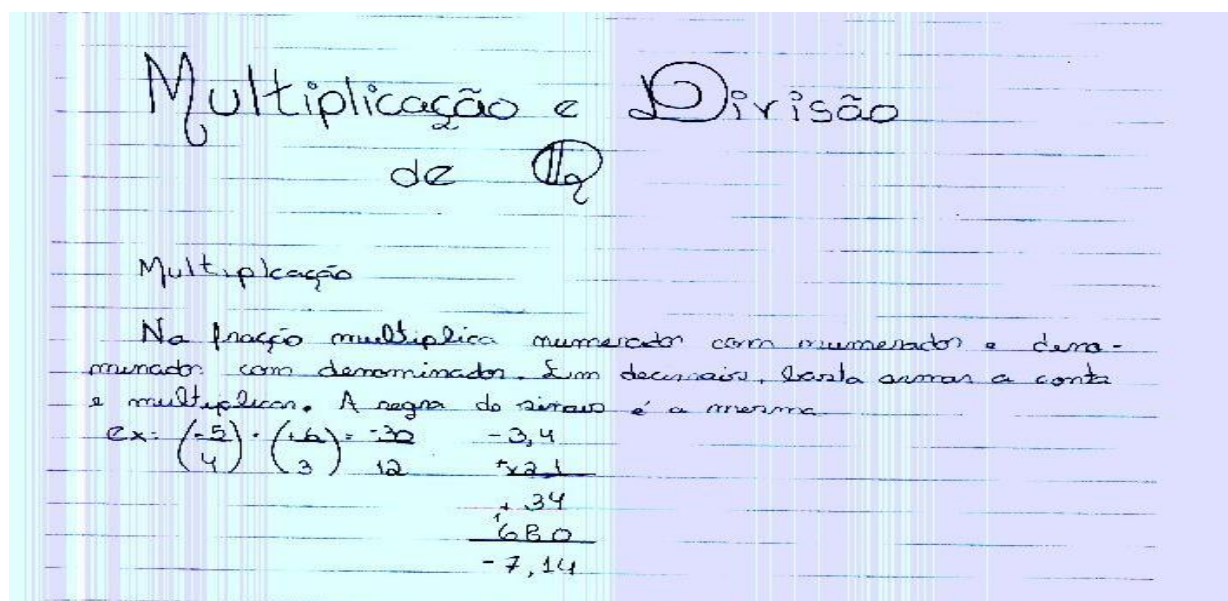 Multiplicação e Divisão
de ℚ
Multiplcação
Na fração multiplica numerador com numerador e deno-
minador com denominador. Em decimais, basta armar a conta
e multiplicar. A regra do sinais é a mesma
ex: (-5/4) · (+6/3) = -30/12
-3,4
+x2,1
+34
680
-7,14